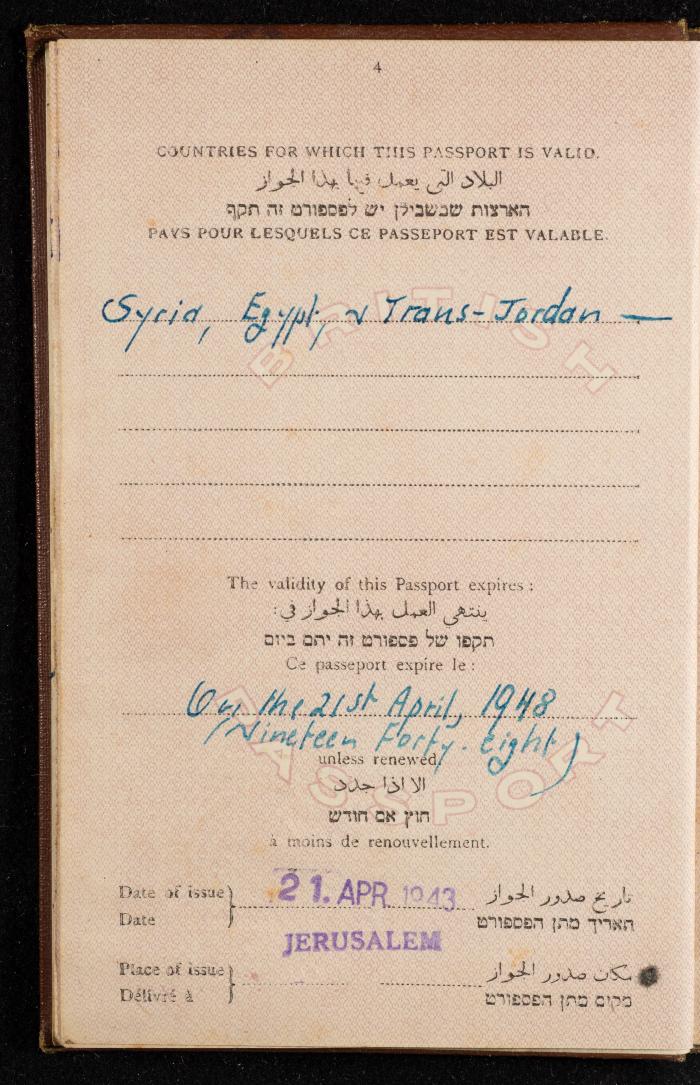 4
COUNTRIES FOR WHICH THIS PASSPORT IS VALID.
البلاد التى يعمل فيها بهذا الجواز
הארצות שבשבילן יש לפספורט זה תקף
PAYS POUR LESQUELS CE PASSEPORT EST VALABLE.
Syria, Egypt, & Trans-Jordan —
BRITISH
The validity of this Passport expires :
ينتهي العمل بهذا الجواز في:
תקפו של פספורט זה יתם ביום
Ce passeport expire le :
On the 21st April, 1948
(Nineteen Forty-eight)
unless renewed.
الا اذا جدد
PASSPORT
חוץ אם חודש
à moins de renouvellement.
Date of issue } 21. APR 1943 تاريخ صدور الجواز
Date האריך מתן הפספורט
JERUSALEM
Place of issue } مكان صدور الجواز
Délivré à מקום מתן הפספורט